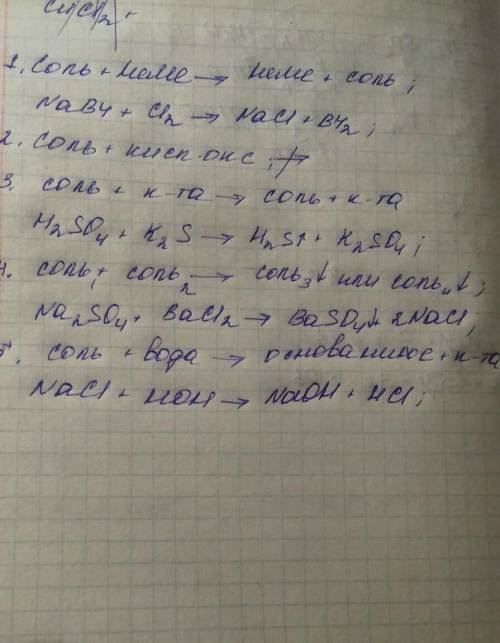 CuCl2 +
1. Соль + неМе → неМе + соль;
NaBr + Cl2 → NaCl + Br2;
2. Соль + кисл. окс. ↛
3. соль + к-та → соль + к-та
H2SO4 + K2S → H2S↑ + K2SO4;
4. соль1 + соль2 → соль3↓ или соль4↓;
Na2SO4 + BaCl2 → BaSO4↓ + 2NaCl;
5. соль + вода → основание + к-та
NaCl + HOH → NaOH + HCl;